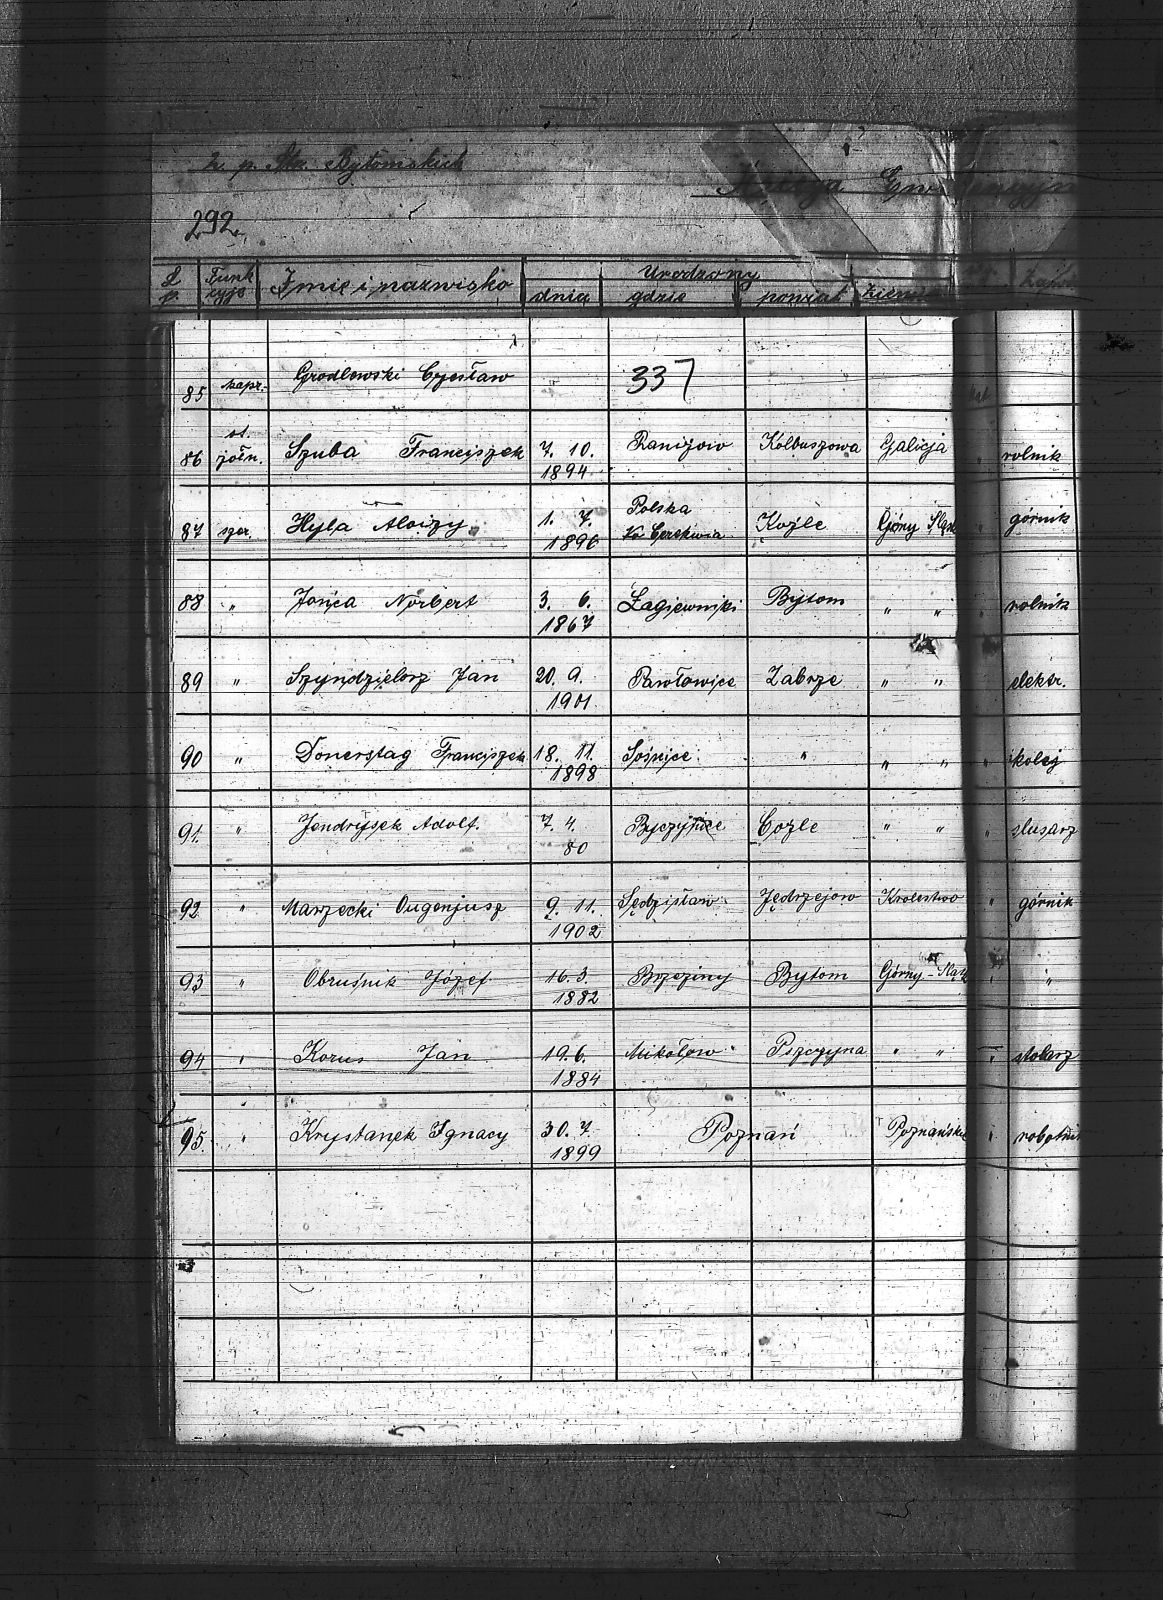 2. p. Strz. Bytomskich
292.
L. p. Funk cyje Imię i nazwisko Urodzony dnia gdzie powiat ziemia
85 kapr. Grodlewski Czesław 337
86 st. żołn. Szuba Franciszek 7. 10. 1894. Raniżów Kolbuszowa Galicja rolnik
87 szer. Hyla Aloizy 1. 7. 1896 Polska Cerekwia Koźle Górny Śląsk górnik
88 " Jońca Norbert 3. 6. 1867 Łagiewniki Bytom " " rolnik
89 " Szyndzielorz Jan 20. 9. 1901 Pawłowice Zabrze " " elektr.
90 " Donerstag Franciszek 18. 11. 1898 Sośnice " " " " kolej
91. " Jendrysek Adolf. 7. 4. 80 Cozle " " " slusarz
92 " Marzecki Eugenjusz 9. 11. 1902 Sędzisław Jędrzejow Krolestwo " górnik
93 " Obruśnik Józef 16. 3. 1882 Brzeziny Bytom Górny-Śląsk " "
94 " Korus Jan 19. 6. 1884 Mikołow Pszczyna " " " stolarz
95. " Krystanek Ignacy 30. 7. 1899 Poznań Poznańskie " robotnik